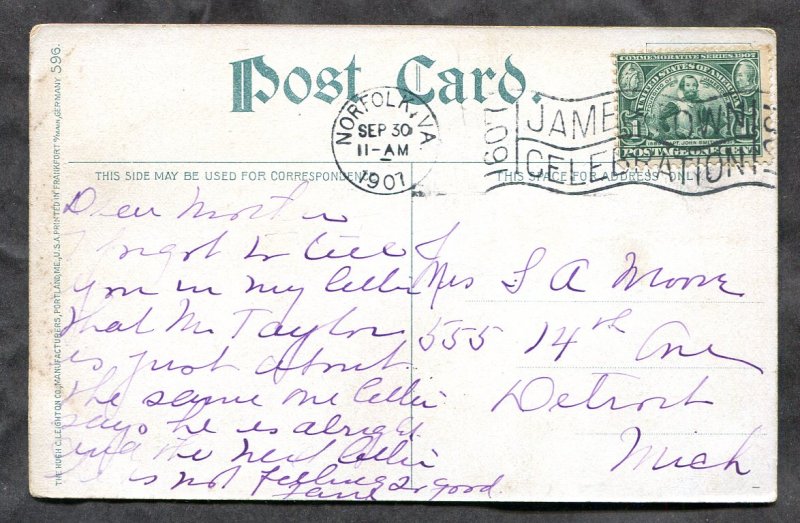 Post Card.
NORFOLK, VA.
SEP 30
11-AM
1907
1607
JAMESTOWN
CELEBRATION
COMMEMORATIVE SERIES 1907
UNITED STATES OF AMERICA
POSTAGE ONE CENT
THIS SIDE MAY BE USED FOR CORRESPONDENCE
THIS SPACE FOR ADDRESS ONLY
Dear Mother
I forgot to tell
you in my letter
that Mr Taylor
is just about
the same one letter
says he is alright
and the next letter
he is not feeling so good
Mrs S A Moore
555 14th Ave
Detroit
Mich
THE HUGH C. LEIGHTON CO., MANUFACTURERS, PORTLAND, ME., U.S.A. PRINTED IN FRANKFORT o/MAIN, GERMANY 596.